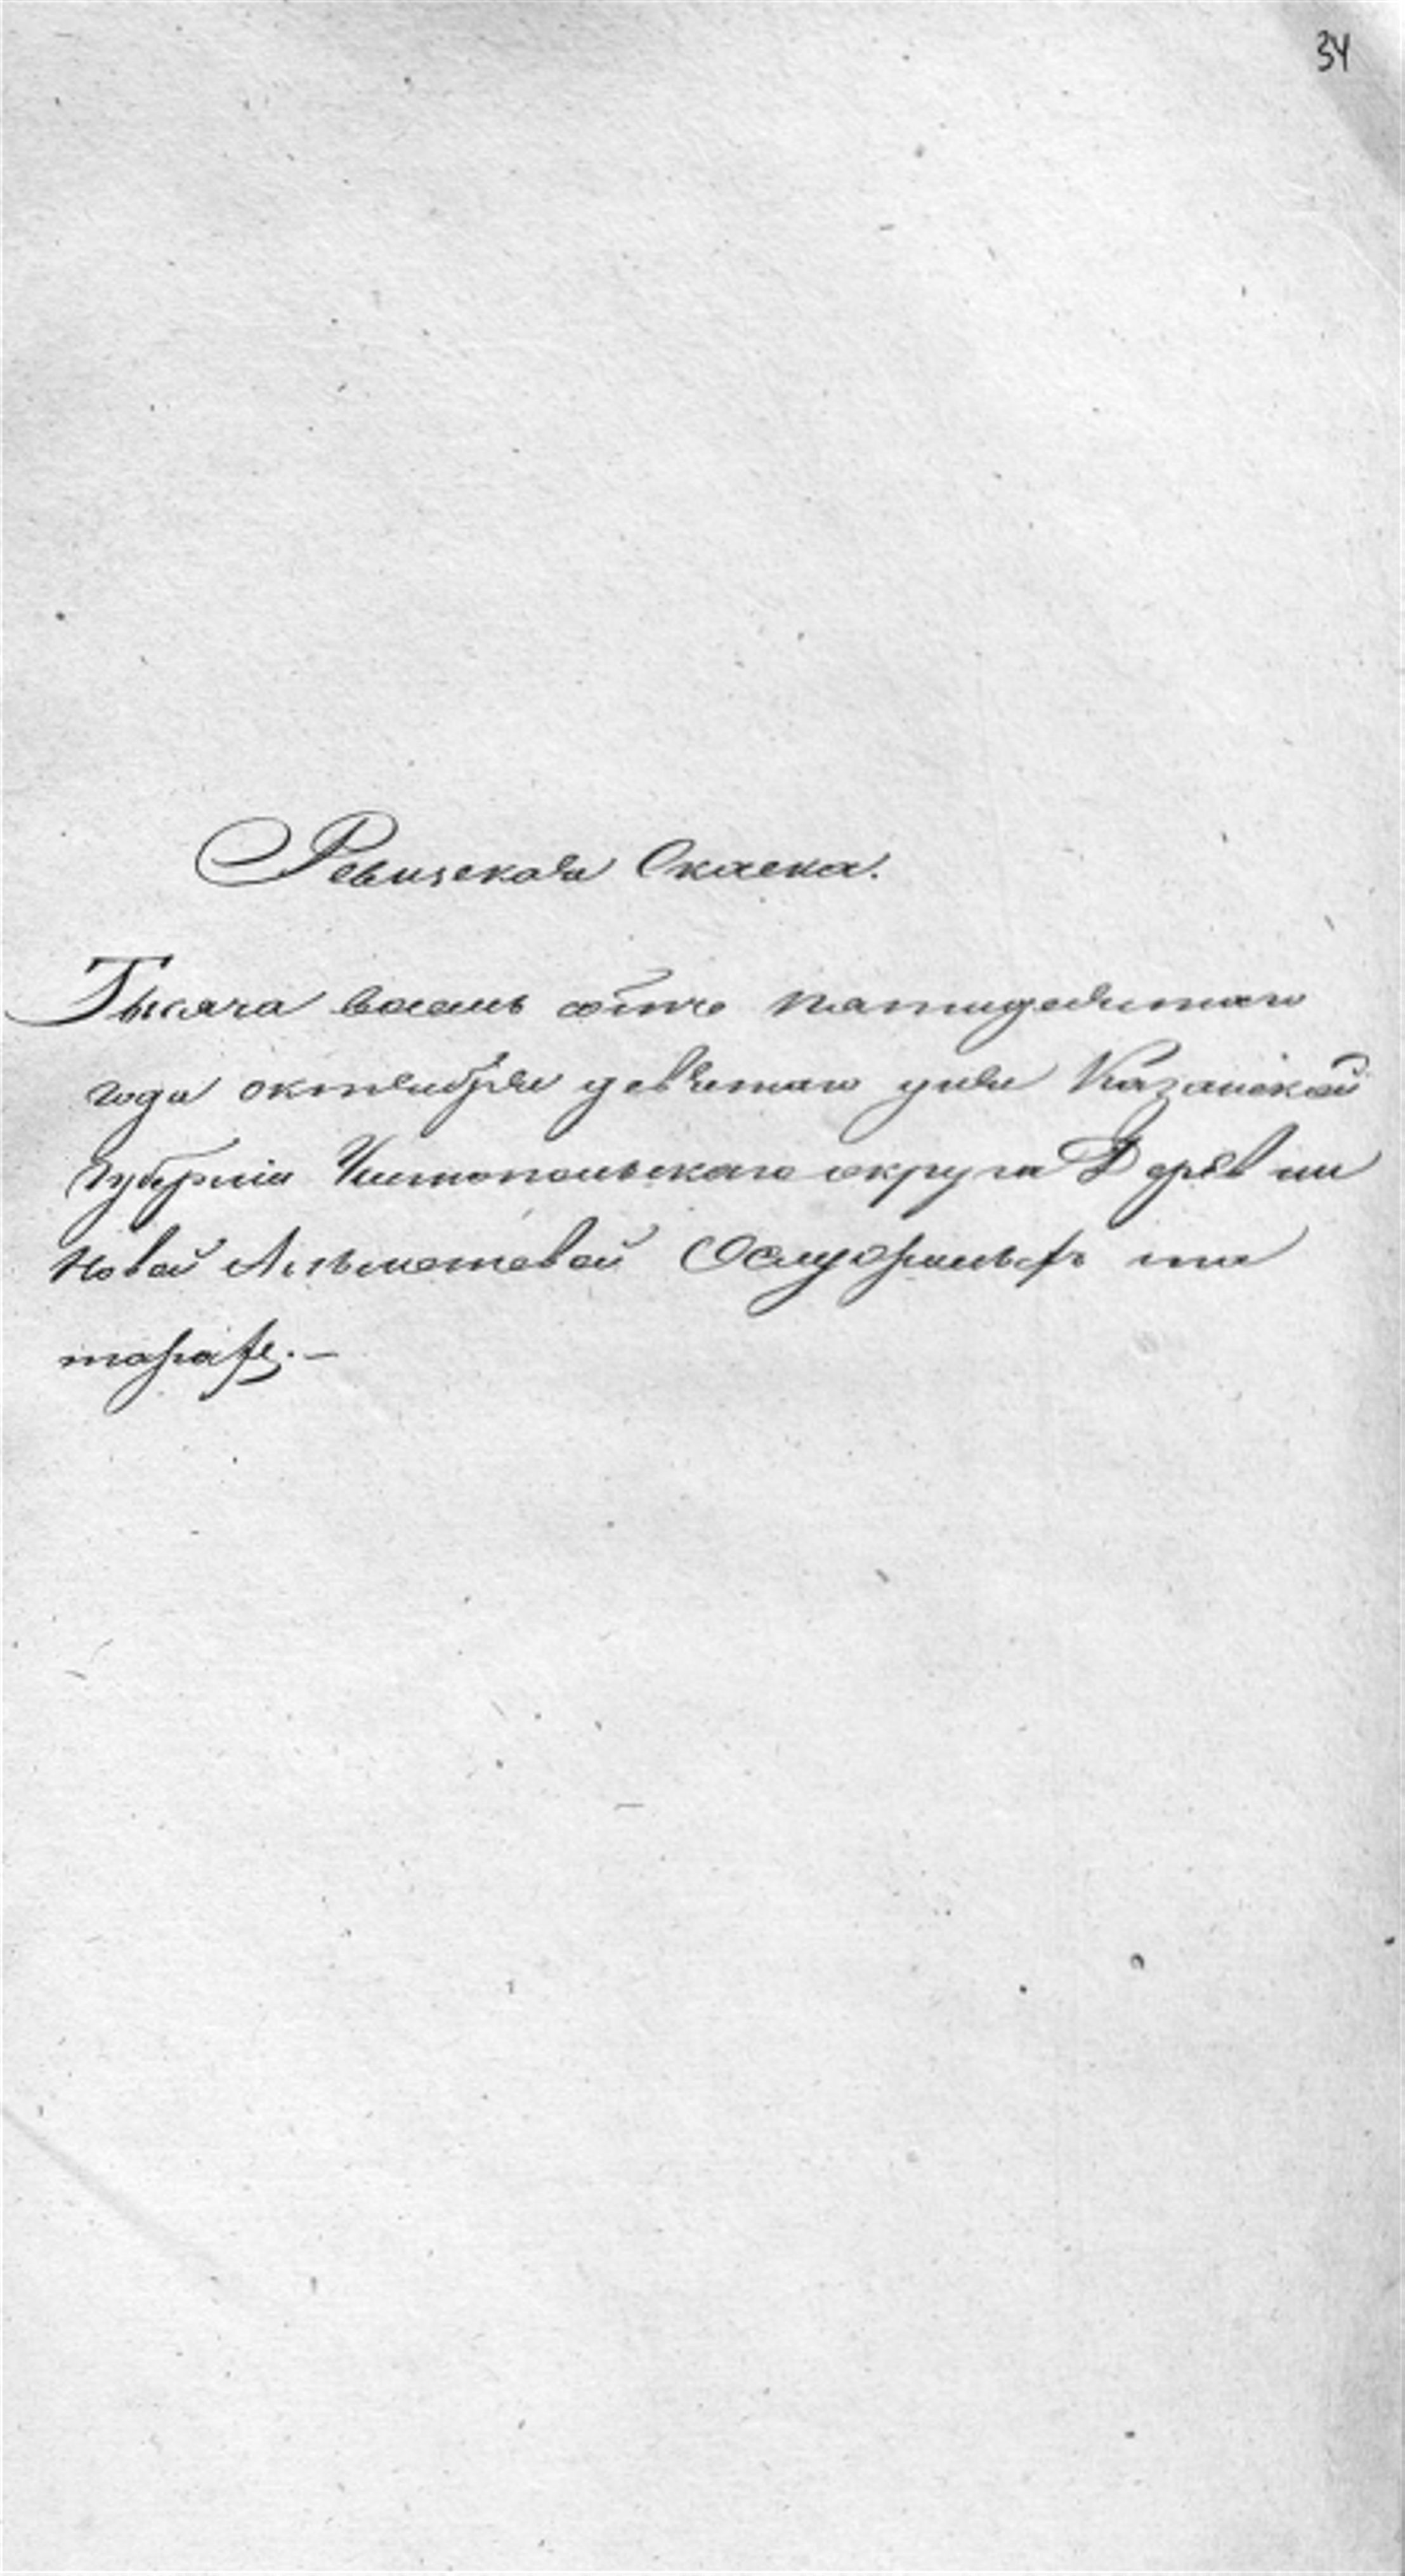 34
Ревизская Скаска.
Тысяча восемь сотъ пятидесятаго
года октября девятаго дня Казанской
Губерніи Чистопольскаго округа Деревни
Новой Альметевой О служилыхъ та
тарахъ. —